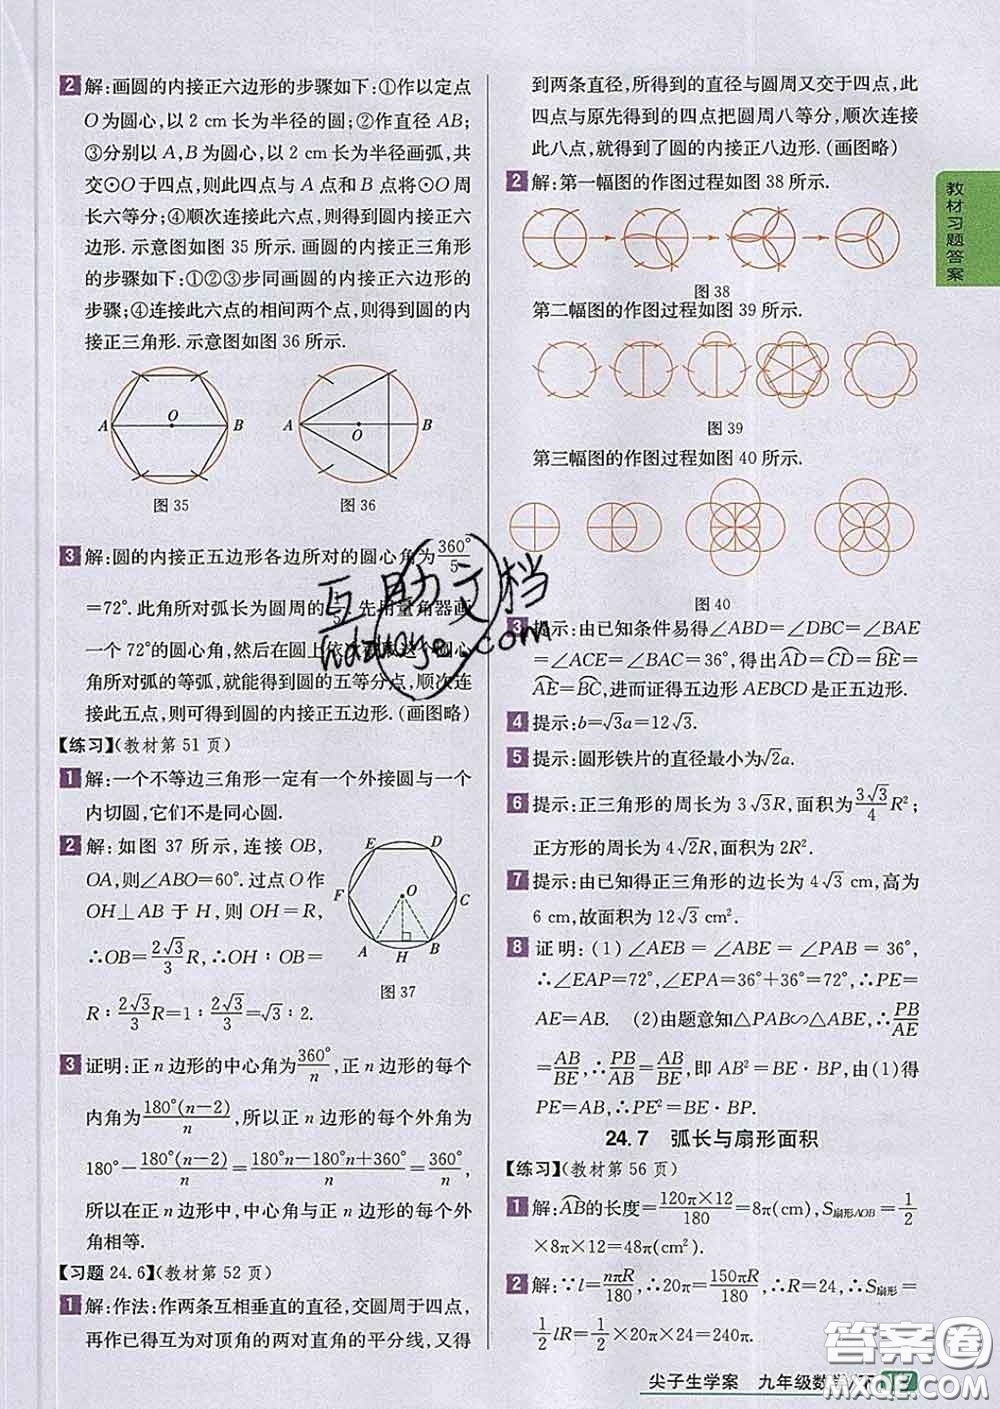 2 解:画圆的内接正六边形的步骤如下:①作以定点
O为圆心,以 2 cm 长为半径的圆;②作直径 AB;
③分别以 A,B 为圆心,以 2 cm 长为半径画弧,共
交⊙O 于四点,则此四点与 A 点和 B 点将⊙O 周
长六等分;④顺次连接此六点,则得到圆内接正六
边形. 示意图如图 35 所示. 画圆的内接正三角形
的步骤:①②③步同画圆的内接正六边形的
步骤;④连接此六点的相间两个点,则得到圆的内
接正三角形. 示意图如图 36 所示.
A O B
图 35
A O B
图 36
3 解:圆的内接正五边形各边所对的圆心角为360°/5
=72°. 此角所对弧长为圆周的 先用量角器画
一个 72°的圆心角,然后在圆上依次截取这个圆心
角所对弧的等弧,就能得到圆的五等分点,顺次连
接此五点,则可得到圆的内接正五边形.(画图略)
【练习】(教材第 51 页)
1 解:一个不等边三角形一定有一个外接圆与一个
内切圆,它们不是同心圆.
2 解:如图 37 所示,连接 OB,
OA,则∠ABO=60°. 过点 O 作
OH⊥AB 于 H,则 OH=R,
∴OB=2√3/3 R,∴OH:OB=
R:2√3/3 R=1:2√3/3=√3:2.
E D F O C A H B
图 37
3 证明:正 n 边形的中心角为360°/n,正 n 边形的每个
内角为180°(n−2)/n,所以正 n 边形的每个外角为
180°−180°(n−2)/n=180°n−180°n+360°/n=360°/n,
所以在正 n 边形中,中心角与正 n 边形的每个外
角相等.
【习题 24.6】(教材第 52 页)
1 解:作法:作两条互相垂直的直径,交圆周于四点,
再作已得互为对顶角的两对直角的平分线,又得
到两条直径,所得到的直径与圆周又交于四点,此
四点与原先得到的四点把圆周八等分,顺次连接
此八点,就得到了圆的内接正八边形.(画图略)
2 解:第一幅图的作图过程如图 38 所示.
图 38
第二幅图的作图过程如图 39 所示.
图 39
第三幅图的作图过程如图 40 所示.
图 40
3 提示:由已知条件易得∠ABD=∠DBC=∠BAE
=∠ACE=∠BAC=36°,得出AD=CD=BE=
AE=BC,进而证得五边形 AEBCD 是正五边形.
4 提示:b=√3a=12√3.
5 提示:圆形铁片的直径最小为√2a.
6 提示:正三角形的周长为 3√3R,面积为3√3/4 R²;
正方形的周长为 4√2R,面积为 2R².
7 提示:由已知得正三角形的边长为 4√3 cm,高为
6 cm,故面积为 12√3 cm².
8 证明:(1)∠AEB=∠ABE=∠PAB=36°,
∴∠EAP=72°,∠EPA=36°+36°=72°,∴PE=
AE=AB. (2)由题意知△PAB∽△ABE,∴PB/AE
=AB/BE,∴PB/AB=AB/BE,即 AB²=BE·BP,由(1)得
PE=AB,∴PE²=BE·BP.
24.7 弧长与扇形面积
【练习】(教材第 56 页)
1 解:AB的长度=120π×12/180=8π(cm),S扇形AOB=1/2
×8π×12=48π(cm²).
2 解:∵l=nπR/180,∴20π=150πR/180,∴R=24,∴S扇形=
1/2 lR=1/2×20π×24=240π.
教材习题答案
尖子生学案 九年级数学 下
互助文档
hdzuoye.com
答案圈
MXQE.COM